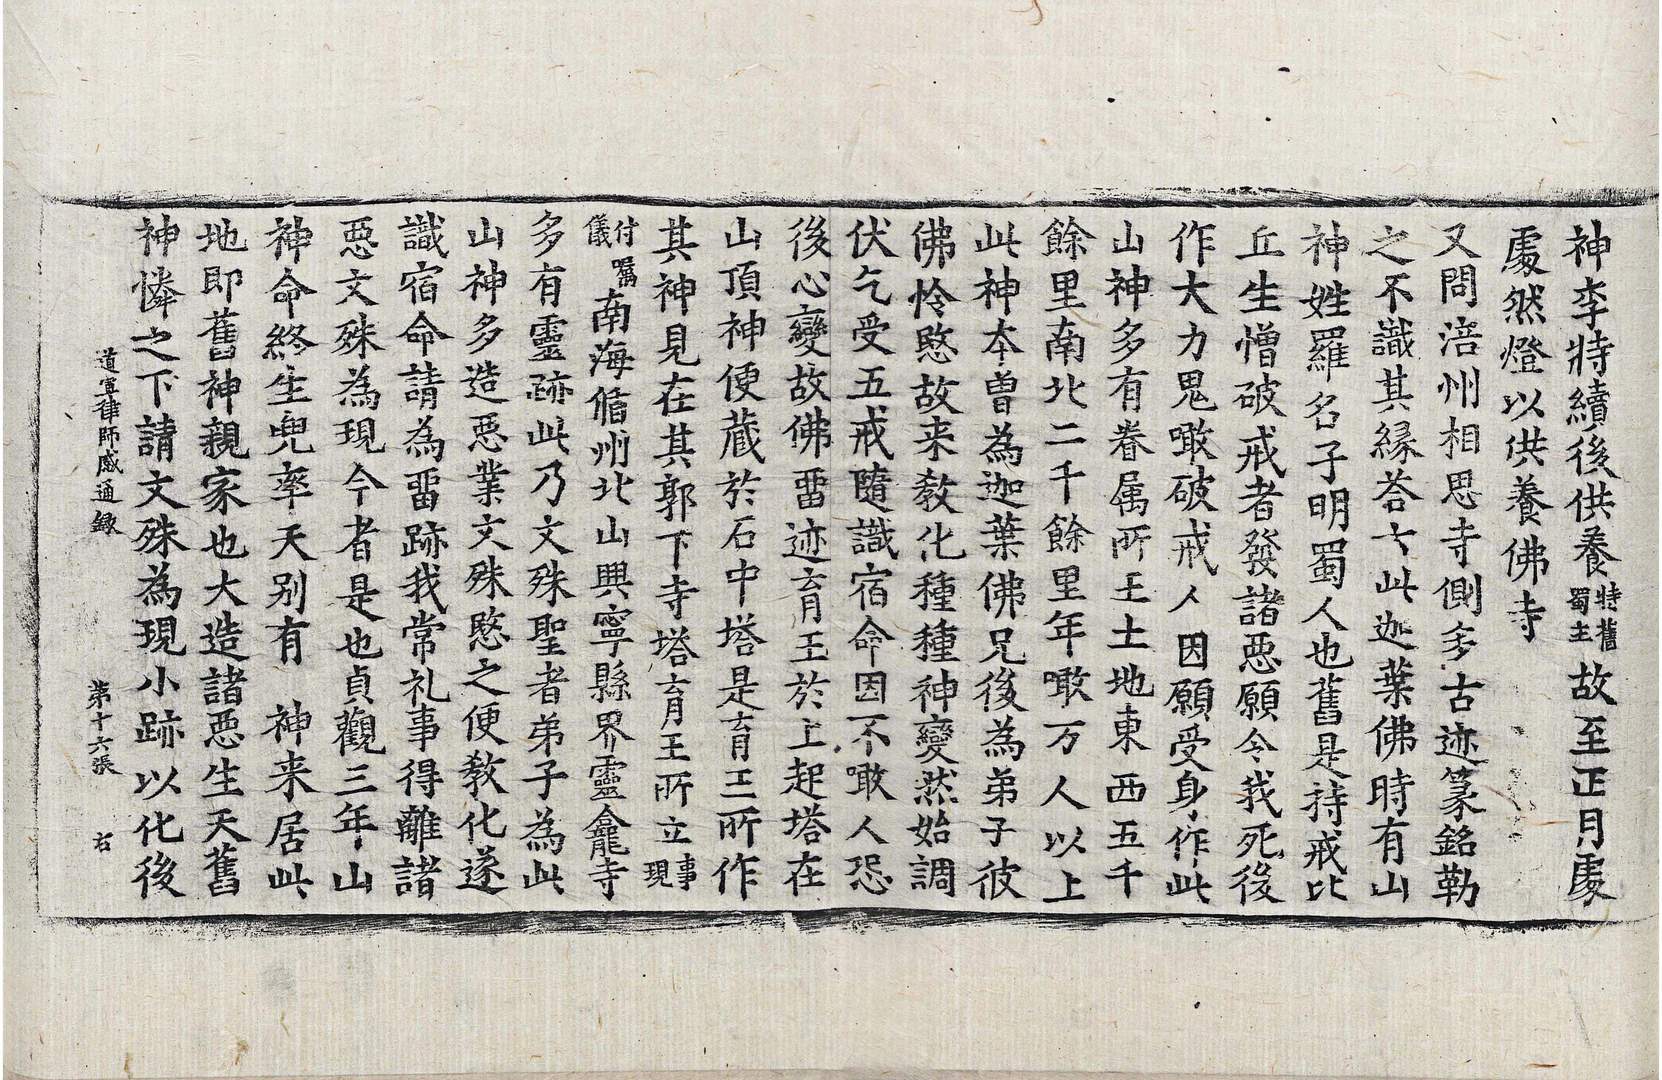 神李特續後供養特舊蜀主故至正月處
處然燈以供養佛寺
又問涪州相思寺側多古迹篆銘勒
之不識其縁荅曰此迦葉佛時有山
神姓羅名子明蜀人也舊是持戒比
丘生憎破戒者發諸惡願令我死後
作大力鬼噉破戒人因願受身作此
山神多有眷属所王土地東西五千
餘里南北二千餘里年噉万人以上
此神本曾為迦葉佛兄後為弟子彼
佛怜愍故来教化種種神變然始調
伏乞受五戒隨識宿命因不噉人恐
後心變故佛留迹育王於上起塔在
山頂神便藏於石中塔是育王所作
其神見在其郭下寺塔育王所立事現
付囑儀南海循州北山興寧縣界靈龕寺
多有靈跡此乃文殊聖者弟子為此
山神多造惡業文殊愍之便教化遂
識宿命請為留跡我常礼事得離諸
惡文殊為現今者是也貞觀三年山
神命終生兜率天別有神来居此
地即舊神親家也大造諸惡生天舊
神憐之下請文殊為現小跡以化後
道宣律師感通錄 第十六張 右